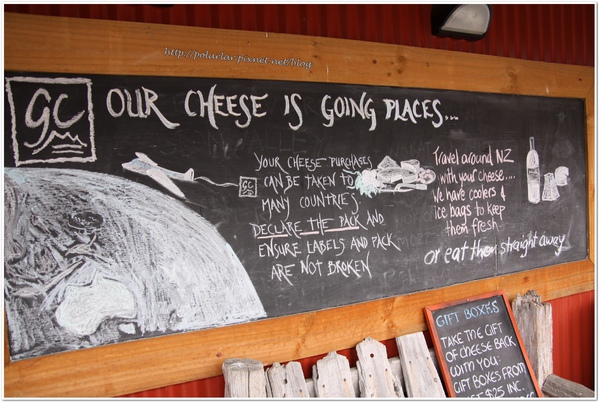 http://polarlar.pixnet.net/blog
GC OUR CHEESE IS GOING PLACES...
YOUR CHEESE PURCHASES
CAN BE TAKEN TO
MANY COUNTRIES.
DECLARE THE PACK AND
ENSURE LABELS AND PACK
ARE NOT BROKEN
GC
Travel around NZ
with your cheese....
We have coolers &
ice bags to keep
them fresh
or eat them straight away
GIFT BOXES
TAKE THE GIFT
OF CHEESE BACK
WITH YOU:
GIFT BOXES FROM
$25 INC.